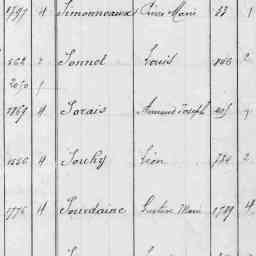 1797 4 Simonneaux Pierre Marie 53 1
562 2 Sonnet Louis 806 2
2050
1869 4 Sorais Armand Joseph
1550 4 Souchy Léon 754 2
1775 4 Sourdaine Gustave Marie 1789 4